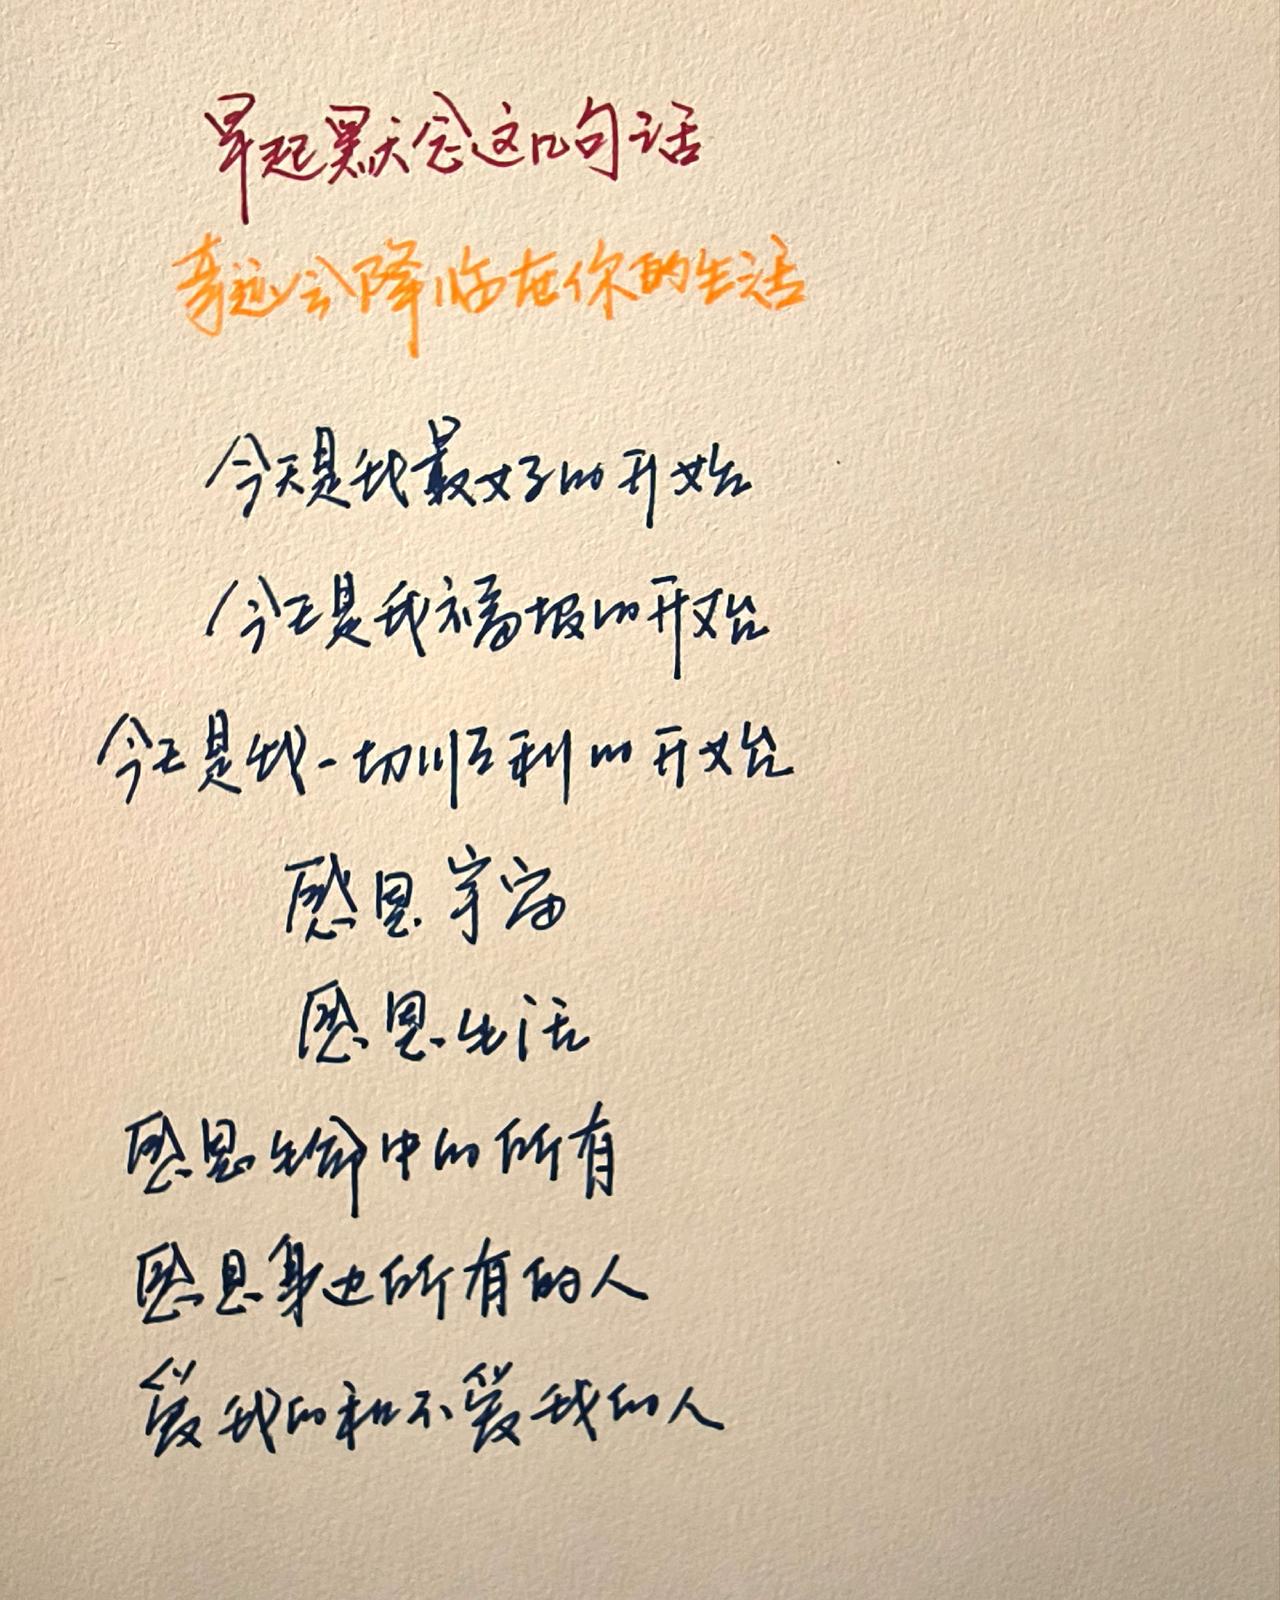 早起默念这几句话
幸运会降临在你的生活
今天是我最好的开始
今天是我福报的开始
今天是我一切顺利的开始
感恩宇宙
感恩生活
感恩生命中的所有
感恩身边所有的人
爱我的和不爱我的人